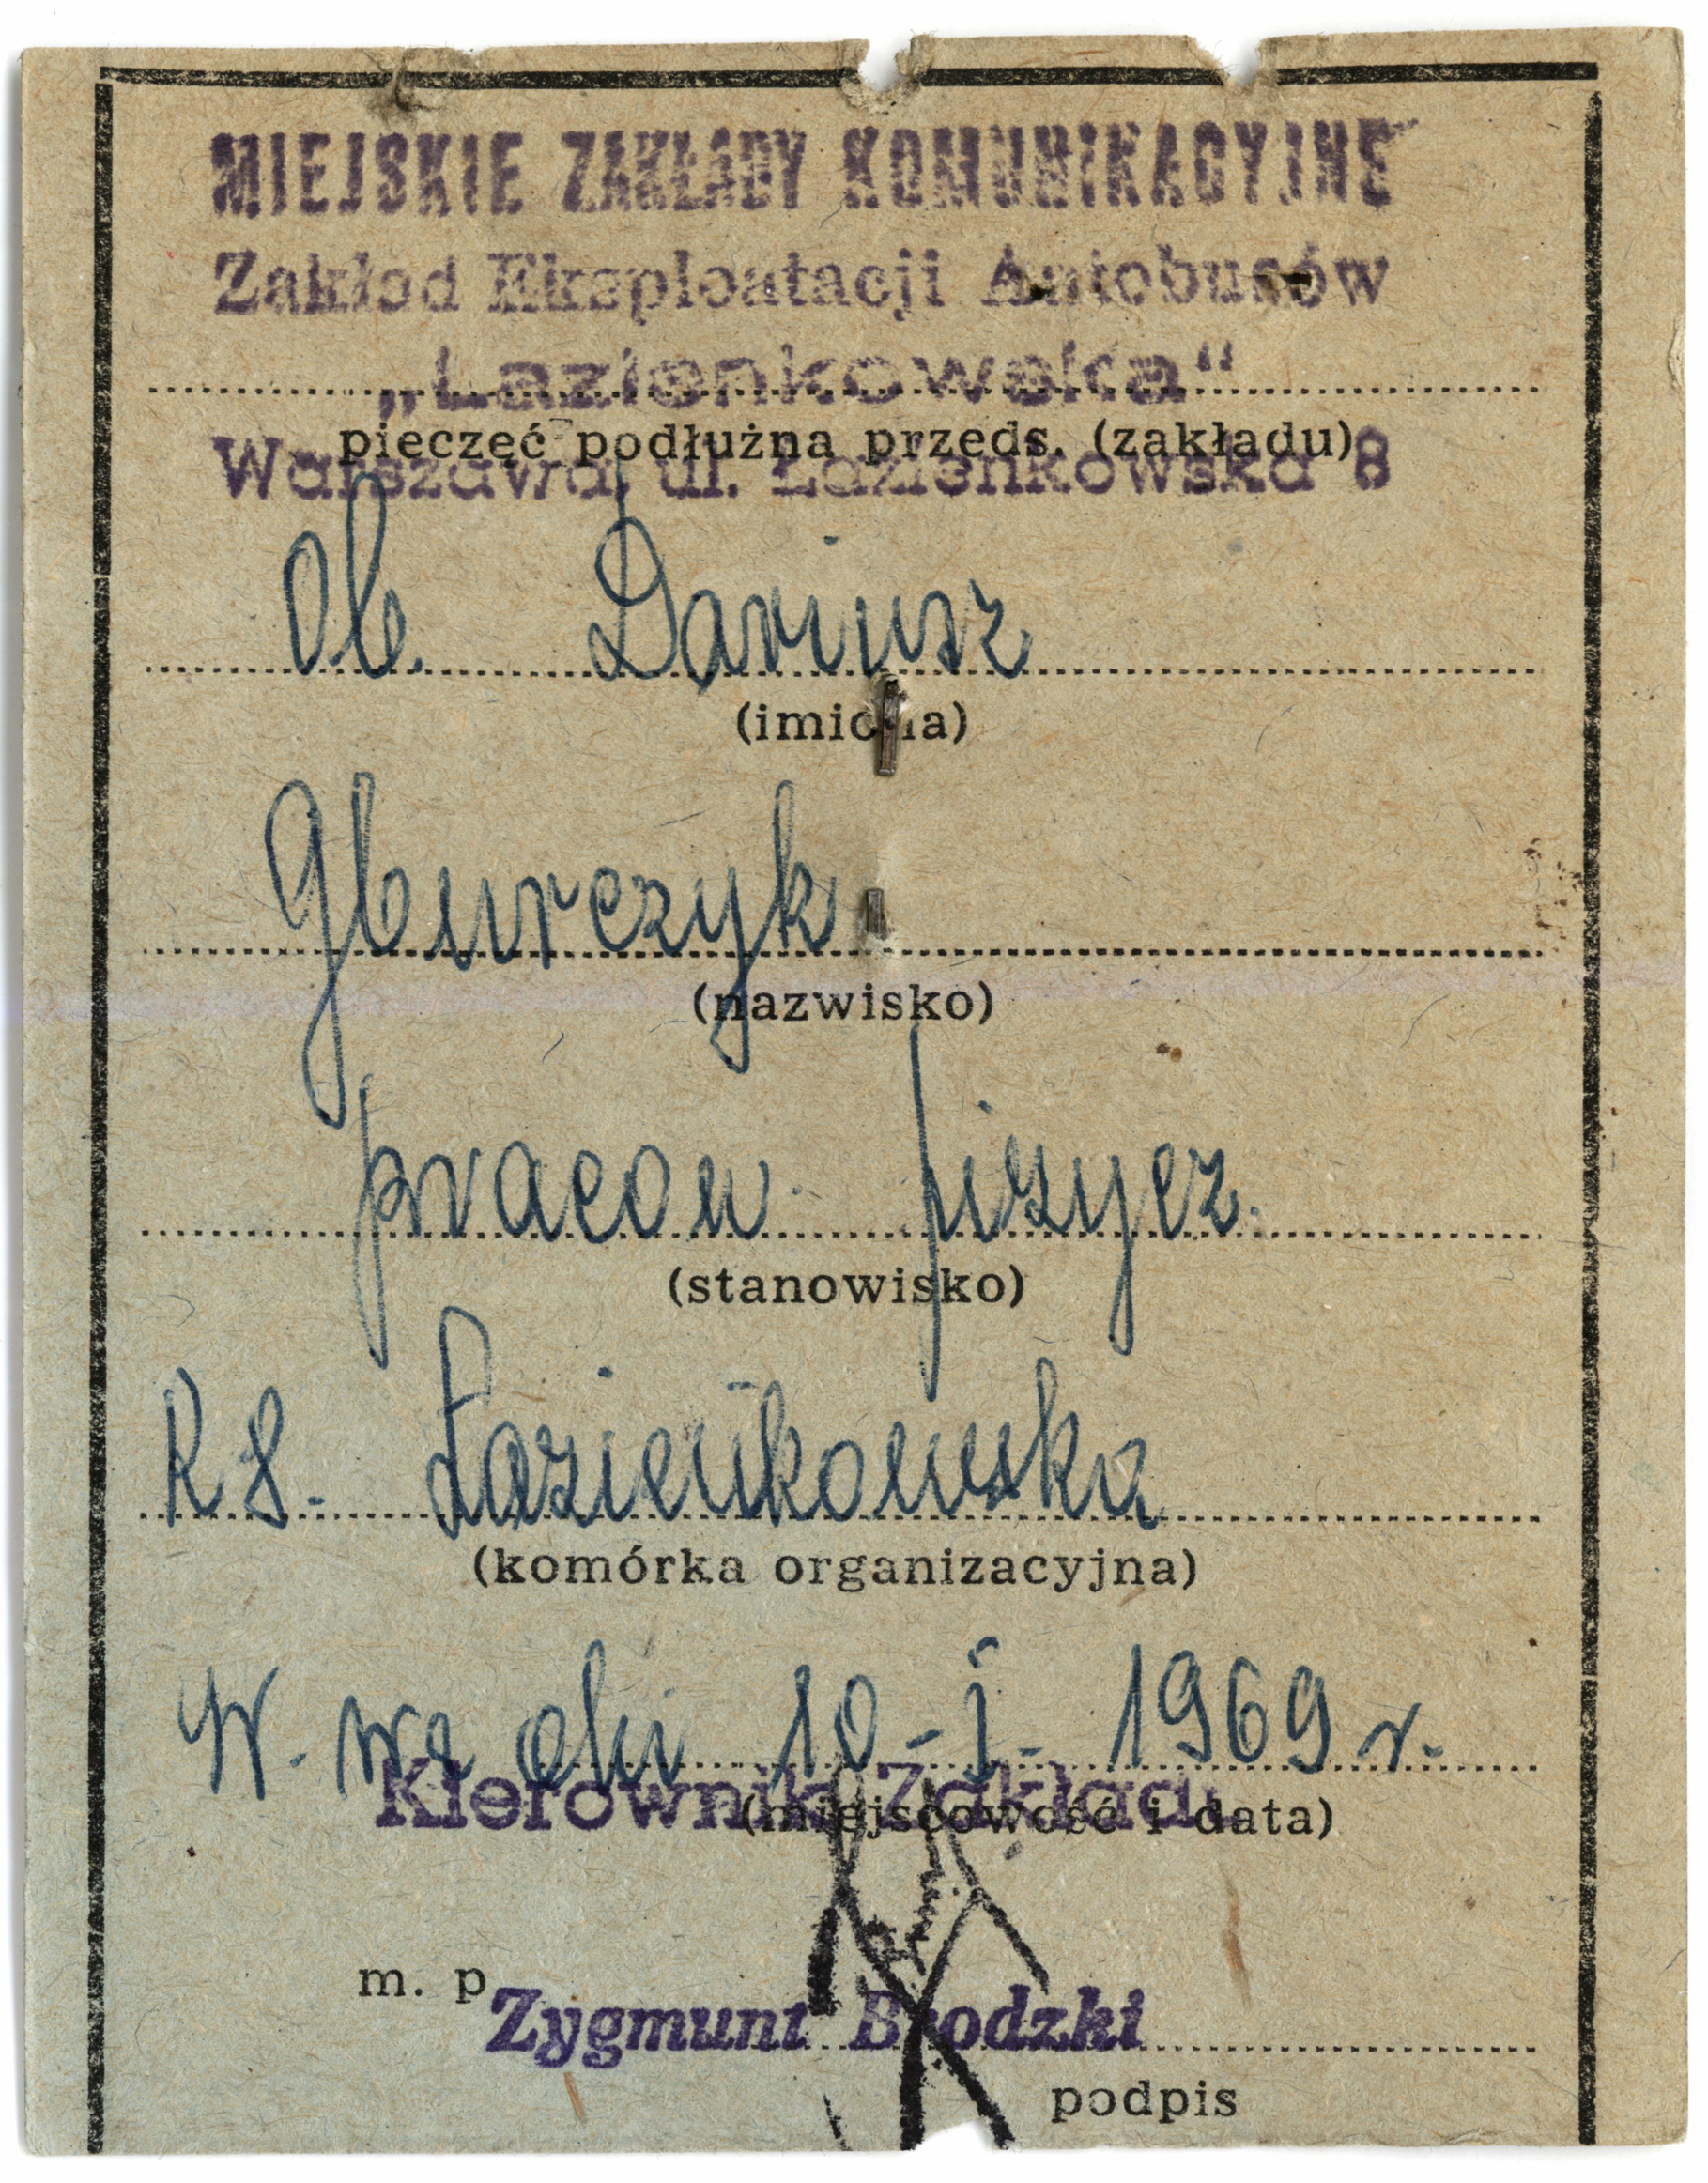 MIEJSKIE ZAKŁADY KOMUNIKACYJNE
Zakład Eksploatacji Autobusów
„Łazienkowska“
pieczęć podłużna przeds. (zakładu)
Warszawa, ul. Łazienkowska 8
Ob. Dariusz
(imiona)
Gburczyk
(nazwisko)
pracow. fizycz.
(stanowisko)
R S. Łazienkowska
(komórka organizacyjna)
W-wa dn 10-I-1969 r.
Kierownik Zakładu
(miejscowość i data)
m. p
Zygmunt Brodzki
podpis